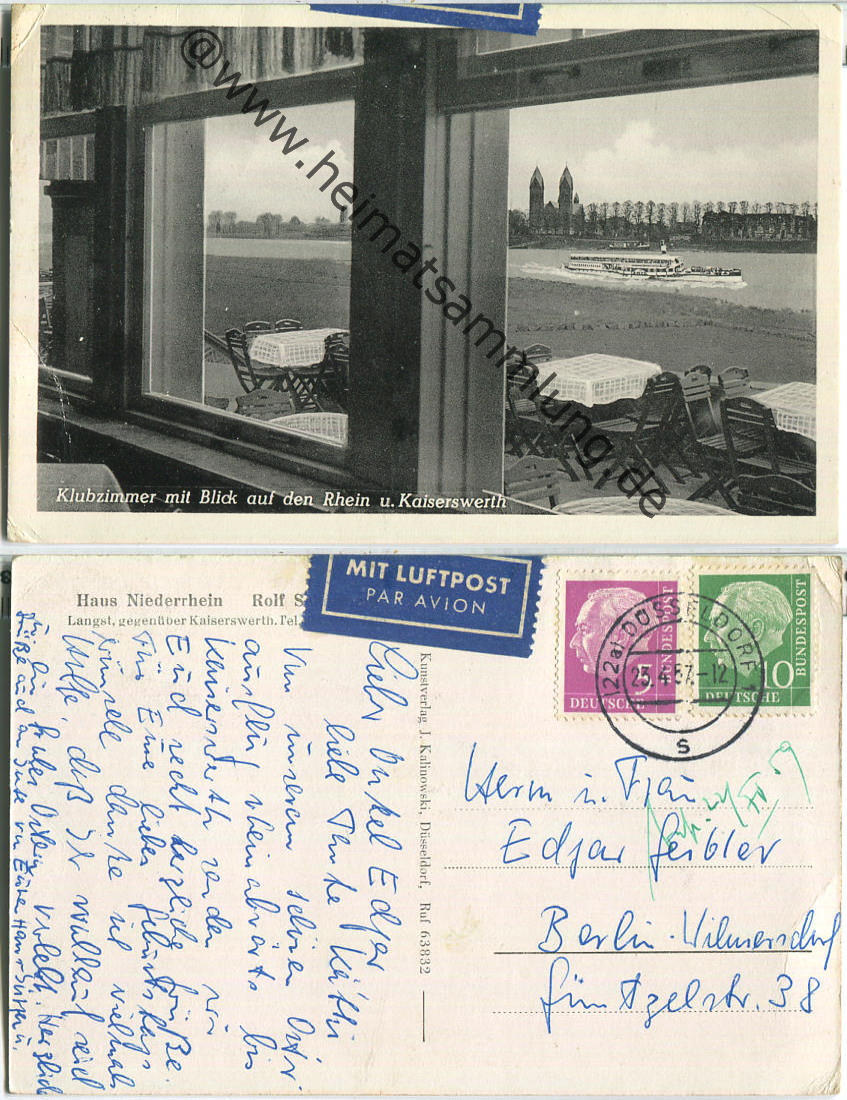 @www.heimatsammlung.de
Klubzimmer mit Blick auf den Rhein u. Kaiserswerth
Haus Niederrhein Rolf S
Langst, gegenüber Kaiserswerth. Tel.
MIT LUFTPOST
PAR AVION
DEUTSCHE BUNDESPOST
5
DEUTSCHE BUNDESPOST
10
(22a) DÜSSELDORF
23.4.57.-12
s
Kunstverlag J. Kalinowski, Düsseldorf, Ruf 63832
Lieber Onkel Edgar
liebe Tante Käthi
Von unserem schönen Oster
ausflug rheinabwärts bis
Kaiserswerth senden wir
Euch recht herzliche Grüße.
Für Eure lieben Geburtstags
wünsche danke ich vielmals
Hoffe, daß Ihr wohlauf seid
u. ein frohes Osterfest. Herzliche
Grüße und von Eurer
Herrn u. Frau
Edgar Geibler
Berlin-Wilmersdorf
Güntzelstr. 38